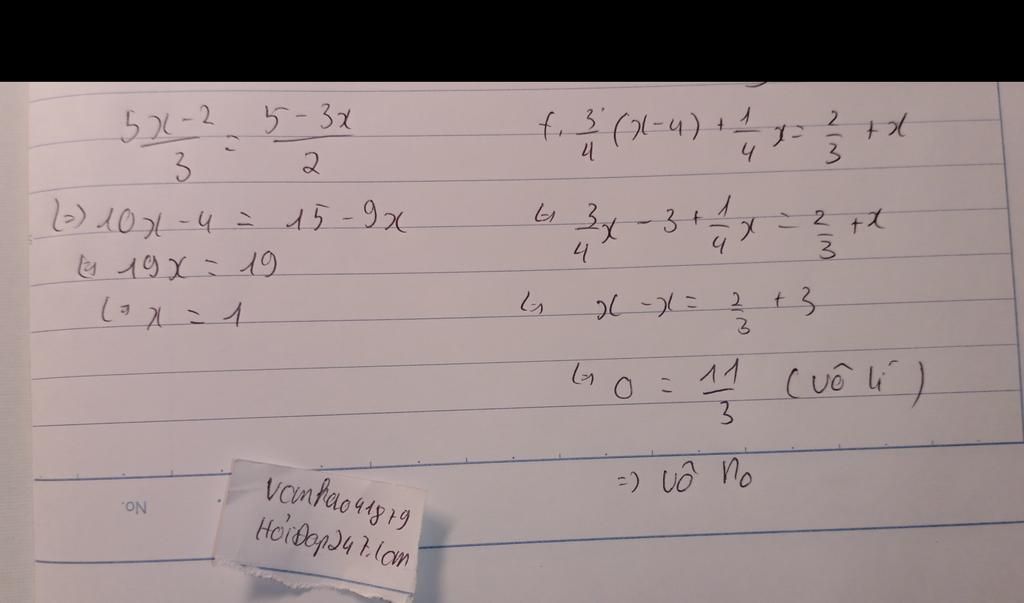 5x-2/3 = 5-3x/2
(=) 10x - 4 = 15 - 9x
(=) 19x = 19
(=) x = 1
f. 3/4 (x-4) + 1/4 x = 2/3 + x
(=) 3/4 x - 3 + 1/4 x = 2/3 + x
(=) x - x = 2/3 + 3
(=) 0 = 11/3 (vô lí)
=) vô no
No.
HỏiĐáp247.com